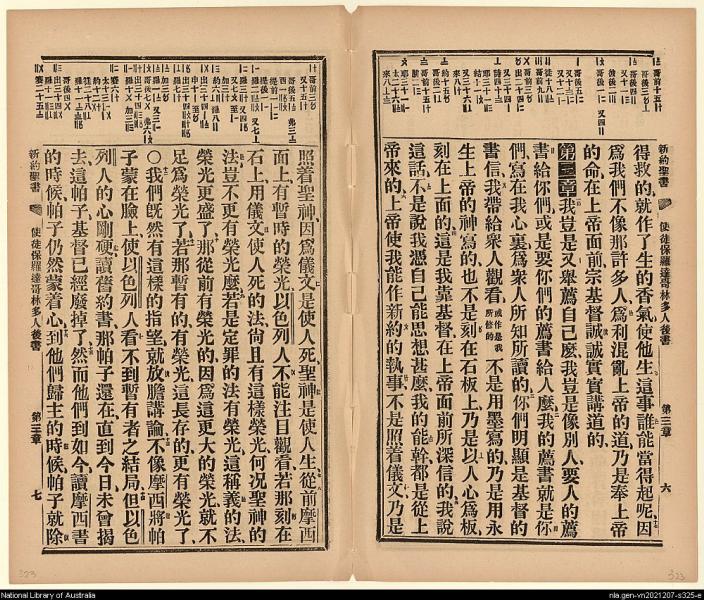 得救的、就作了生的香氣、使他生、這事誰能當得起呢、因
爲我們不像那許多人、爲利混亂上帝的道、乃是奉上帝
的命、在上帝面前、宗基督誠誠實實講道的、
第三章我豈是又舉薦自己麼、我豈是像別人、要人的薦
書給你們、或是要你們的薦書給人麼、我的薦書就是你
們、寫在我心裏、爲衆人所知所讀的、你們明顯是基督的
書信、我帶給衆人觀看、或作是我所修的 不是用墨寫的、乃是用永
生上帝的神寫的、也不是刻在石板上、乃是以人心爲板、
刻在上面的、這是我靠基督在上帝面前所深信的、我說
這話、不是說我憑自己能思想甚麼、我的能幹都是從上
帝來的、上帝使我能作新約的執事、不是照着儀文、乃是
新約聖書
使徒保羅達哥林多人後書
第三章
六
照着聖神、因爲儀文是使人死、聖神是使人生、從前摩西
面上有暫時的榮光、以色列人不能注目觀看、若那刻在
石上用儀文使人死的法、尚且有這樣榮光、何況聖神的
法、豈不更有榮光麼、若是定罪的法有榮光、這稱義的法、
榮光更盛了、那從前有榮光的、因爲這更大的榮光、就不
足爲榮光了、若那暫有的有榮光、這長存的更有榮光了、
○我們旣然有這樣的指望、就放膽講論、不像摩西將帕
子蒙在臉上、使以色列人看不到暫有者之結局、但以色
列人的心剛硬、讀舊約書、那帕子還在、直到今日未曾揭
去、這帕子基督已經廢掉了、然而他們到如今、讀摩西書
的時候、帕子仍然蒙着心、到他們歸主的時候、帕子就除
新約聖書
使徒保羅達哥林多人後書
第三章
七
323
323
National Library of Australia
nla.gen-vn2021207-s325-e